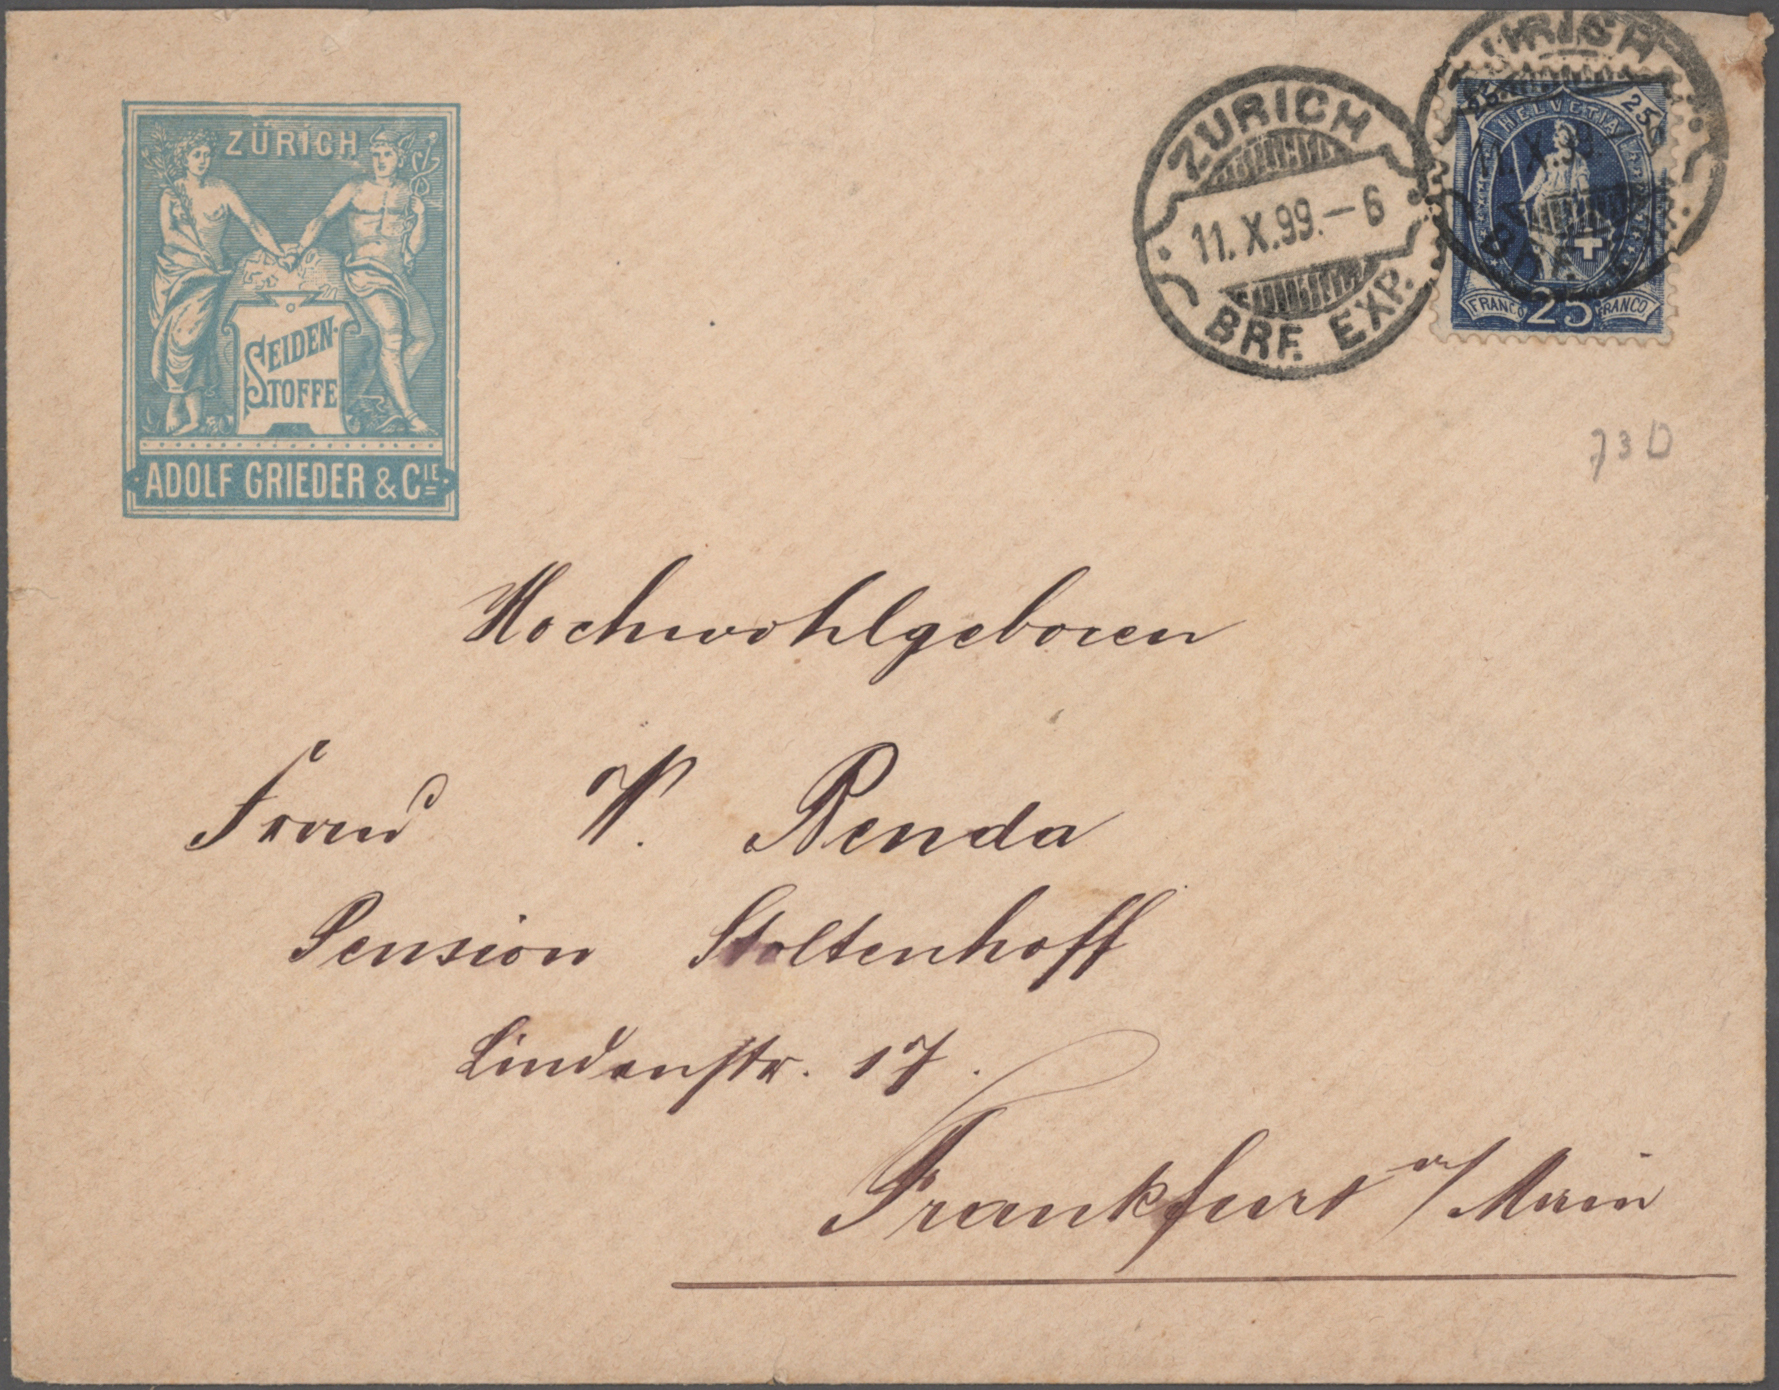 ZÜRICH
SEIDEN-
STOFFE
ADOLF GRIEDER & CIE
ZÜRICH
11. X. 99. – 6
BRF. EXP.
ZÜRICH
11. X. 99.
BRF.
25 25
HELVETIA
FRANCO 25 FRANCO
73 D
Hochwohlgeboren
Frau W. Benda
Pension Stoltenhoff
Lindenstr. 17.
Frankfurt a/Main